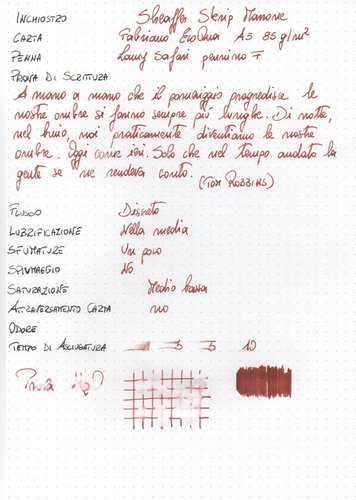 INCHIOSTRO Sheaffer Skrip Marrone
CARTA Fabriano EcoQua A5 85 g/m²
PENNA Lamy Safari pennino F
PROVA DI SCRITTURA
A mano a mano che il pomeriggio progredisce le
nostre ombre si fanno sempre più lunghe. Di notte,
nel buio, noi praticamente diventiamo le nostre
ombre. Oggi come ieri. Solo che nel tempo andato la
gente se ne rendeva conto.
(TOM ROBBINS)
FLUSSO Discreto
LUBRIFICAZIONE Nella media
SFUMATURE Un poco
SPIUMAGGIO No
SATURAZIONE Medio bassa
ATTRAVERSAMENTO CARTA no
ODORE
TEMPO DI ASCIUGATURA 5 5 10
Prova H₂O